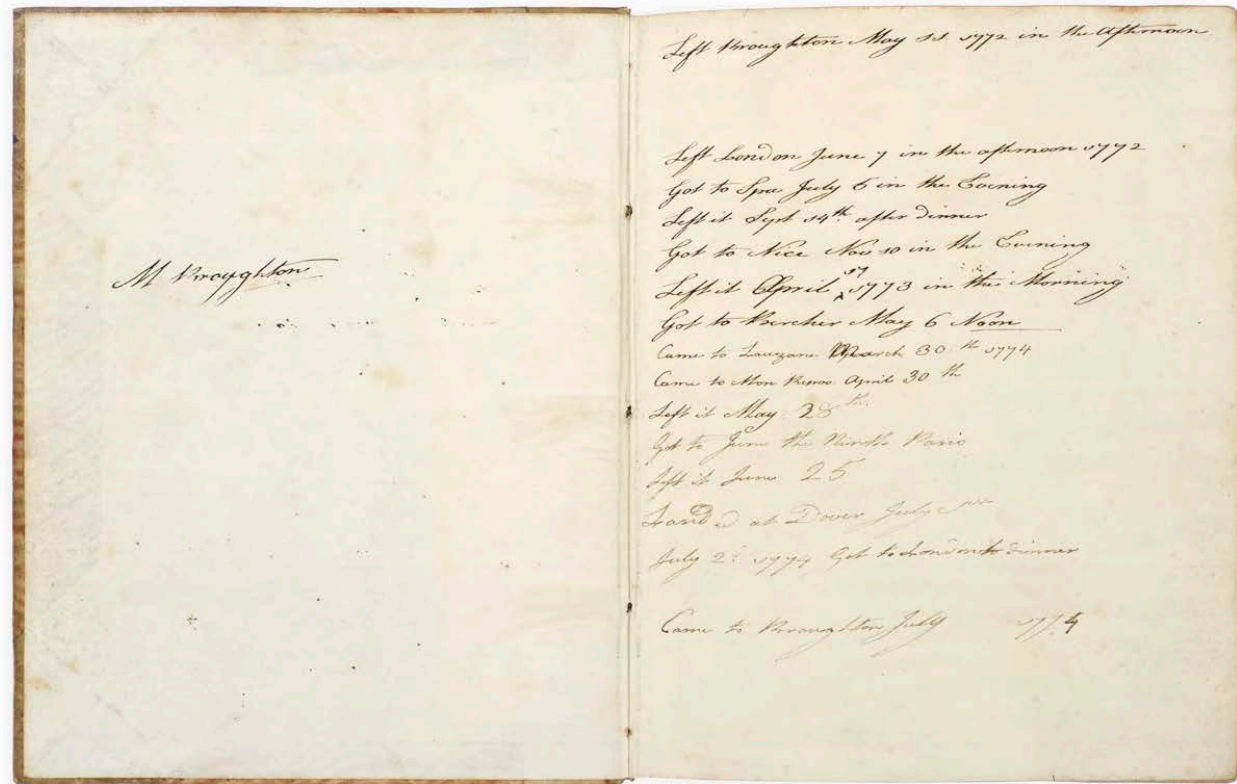 M Broughton
Left Broughton May 1st 1772 in the Afternoon
Left London June 7 in the afternoon 1772
Got to Spa July 6 in the Evening
Left it Sept 14th after dinner
Got to Nice Nov 10 in the Evening
Left it April 17 1773 in the Morning
Got to Bercher May 6 Noon
Came to Lauzane March 30th 1774
Came to Mon Repos April 30th
Left it May 28th
Got to June the Ninth Paris
Left it June 25
Landed at Dover July
July 2d 1774 Got to London to dinner
Came to Broughton July 1774